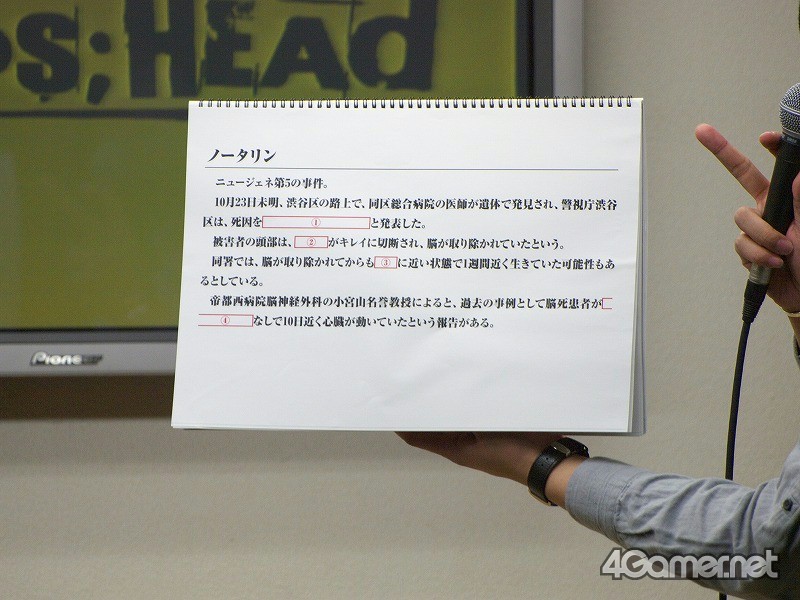 S;HEAd
ノータリン
ニュージェネ第5の事件。
10月23日未明、渋谷区の路上で、同区総合病院の医師が遺体で発見され、警視庁渋谷
区は、死因を①と発表した。
被害者の頭部は、②がキレイに切断され、脳が取り除かれていたという。
同署では、脳が取り除かれてからも③に近い状態で1週間近く生きていた可能性もあ
るとしている。
帝都西病院脳神経外科の小宮山名誉教授によると、過去の事例として脳死患者が
④なしで10日近く心臓が動いていたという報告がある。
Pioneer
4Gamer.net